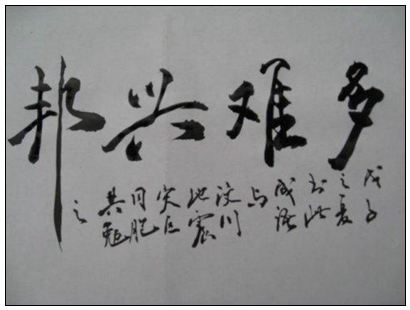 多难兴邦
戊子之夏书此成语与汶川地震灾区同胞共勉之